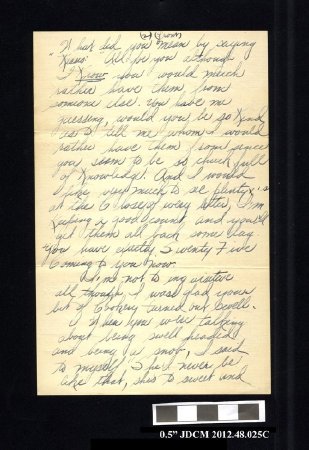 What did you mean by saying
"Kisses" All for you although
I Know you would much
rather have them from
someone else. You have me
guessing, would you be so Kind
as to tell me whom I would
rather have them from since
you seem to be so chuck full
of Knowledge. And I would
like very much to see plenty X's
at the Close of every letter, I'm
Keeping a good count, and you'll
get them all back some day
you have exactly Seventy Five
Coming to you now.
I'm not to inquisitive
all though, I was glad your
bit of Cookery turned out Swell.
When you were talking
about being swell headed
and being a snob, I said
to myself, She'd never be
like that, she's to sweet and
0.5" JDCM 2012.48.025C